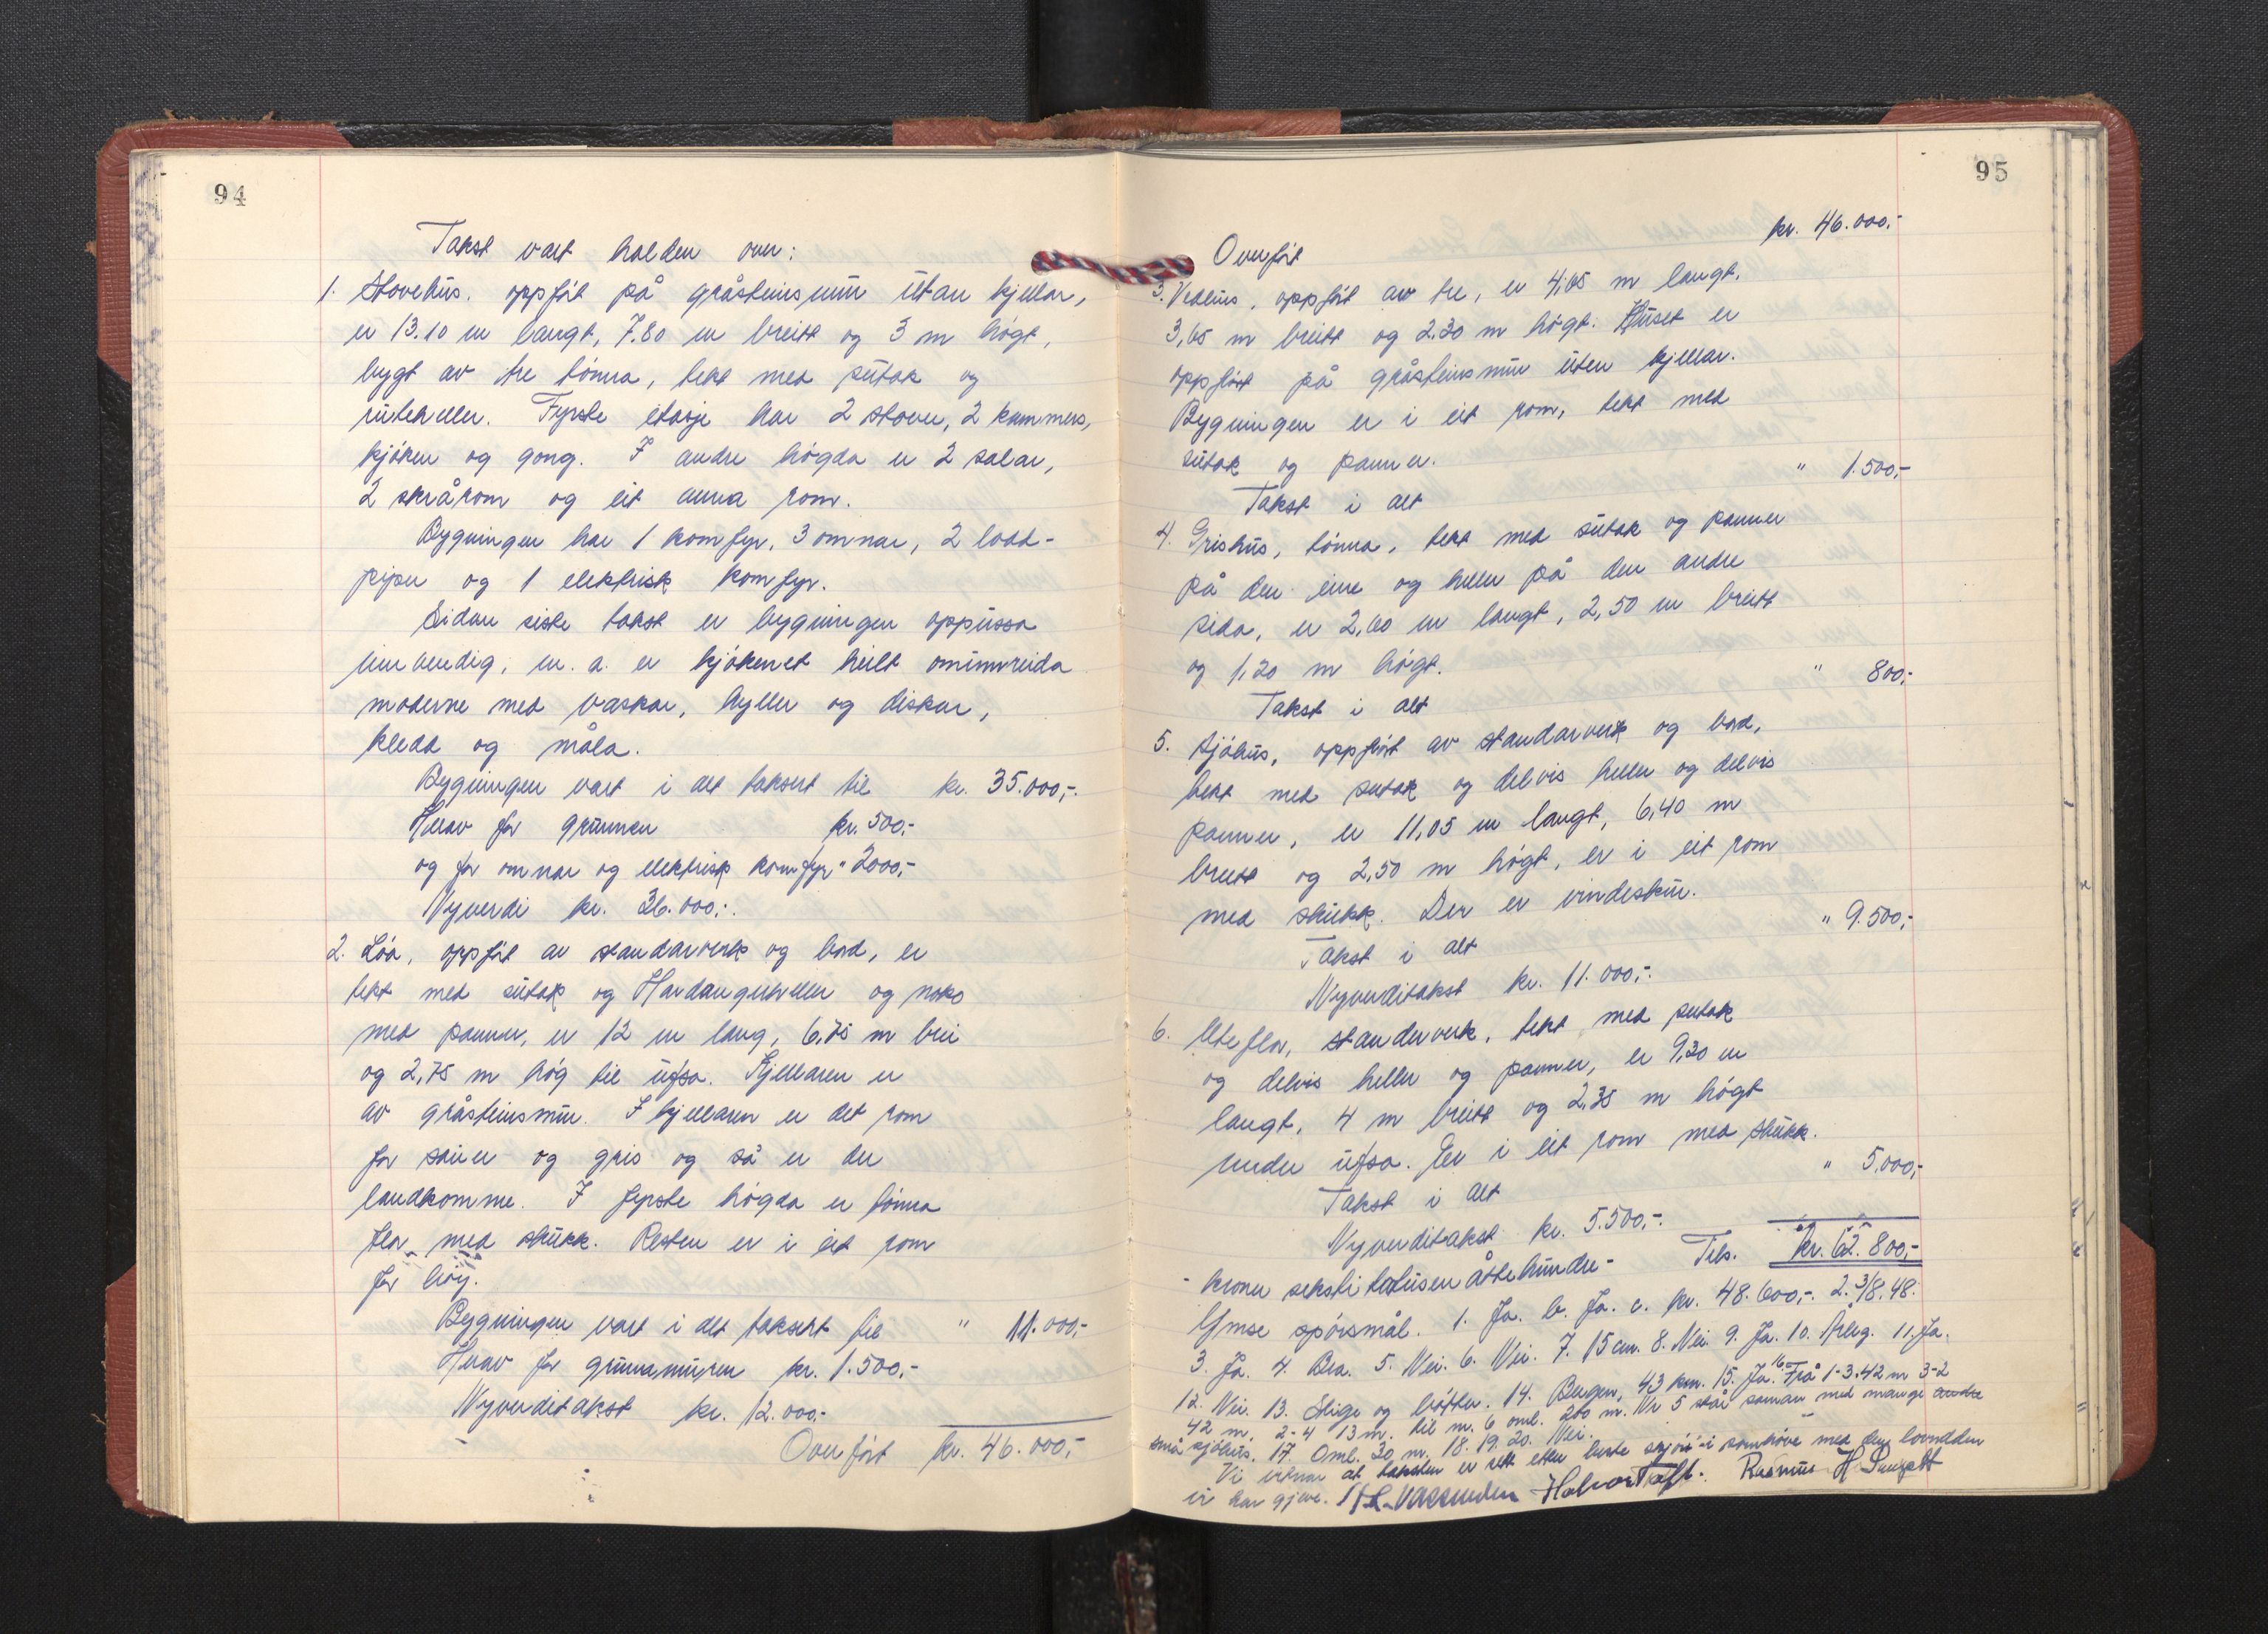 94
Takst vart halden over:
1. Stovehus. oppført på gråsteinsmur utan kjellar,
er 13.10 m langt, 7.80 m breitt og 3 m høgt,
bygt av tre tømra, tekt med sutak og
ruteheller. Fyrste etasje har 2 stover, 2 kammers,
kjøken og gong. I andre høgda er 2 salar,
2 skrårom og eit anna rom.
Bygningen har 1 komfyr, 3 omnar, 2 lodd-
piper og 1 elektrisk komfyr.
Sidan siste takst er bygningen oppussa
innvendig, m. a. er kjøkenet heilt ominnreida
moderne med vaskar, hyller og diskar,
kledd og måla.
Bygningen vart i alt taksert til kr. 35.000,-.
Herav for grunnen kr. 500,-
og for omnar og elektrisk komfyr " 2000,-
Nyverdi kr. 36.000,-.
2. Løa, oppført av standarverk og bord, er
tekt med sutak og Hardangerheller og noko
med panner, er 12 m lang, 6,75 m brei
og 2,75 m høg til ufsa. Kjellaren er
av gråsteinsmur. I kjellaren er det rom
for sauer og gris og så er der
landkomme. I fyrste høgda er tømra
flor med skukk. Resten er i eit rom
for høy.
Bygningen vart i alt taksert til " 11.000,-
Herav for grunnmuren kr. 1.500,-
Nyverditakst kr. 12.000,-
Overført kr. 46.000,-
95
Overført kr. 46.000,-
3. Vedhus, oppført av tre, er 4,65 m langt,
3,65 m breitt og 2,30 m høgt. Huset er
oppført på gråsteinsmur uten kjellar.
Bygningen er i eit rom, tekt med
sutak og panner.
Takst i alt " 1.500,-
4. Grishus, tømra, tekt med sutak og panner
på den eine og heller på den andre
sida, er 2,60 m langt, 2,50 m breitt
og 1,20 m høgt.
Takst i alt " 800,-
5. Sjøhus, oppført av standarverk og bord,
tekt med sutak og delvis heller og delvis
panner, er 11,05 m langt, 6,40 m
breitt og 2,50 m høgt, er i eit rom
med skukk. Der er vindeskur.
Takst i alt " 9.500,-
Nyverditakst kr. 11.000,-.
6. Uteflor, standerverk, tekt med sutak
og delvis heller og panner, er 9,20 m
langt, 4 m breitt og 2,35 m høgt
under ufsa. Er i eit rom med skukk.
Takst i alt " 5.000,-
Nyverditakst kr. 5.500,-.
Tils. kr. 62.800,-
- kroner sekstitotusenåttehundre -
Ymse spørsmål. 1. Ja. b. Ja. c. kr. 48.600,-. 2. 3/8.48.
3. Ja. 4. Bra. 5. Nei. 6. Nei. 7. 15 cm. 8. Nei. 9. Ja. 10. Årleg. 11. Ja.
12. Nei. 13. Stige og bøtter. 14. Bergen, 43 km. 15. Ja. 16. Frå 1-3.42 m 3-2
42 m, 2-4 13 m. til nr. 6 oml. 200 m. Nr 5 står saman med mange andre
små sjøhus. 17. Oml. 30 m. 18. 19. 20. Nei.
Vi vitnar at taksten er sett etter beste skjøn i samhøve med den lovnaden
vi har gjeve. Vassenden Halvor Toft. Rasmus H.